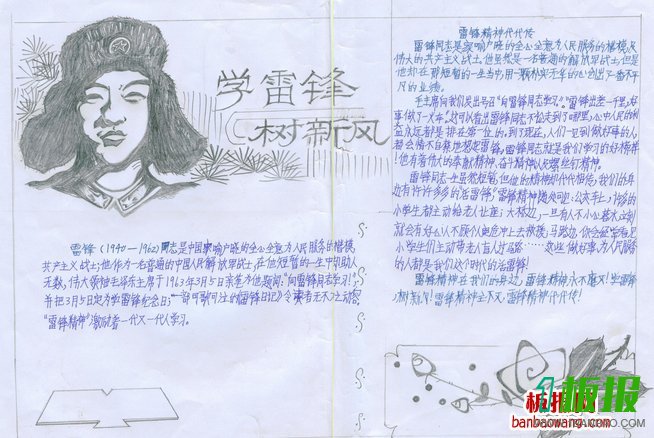 学雷锋
树新风
雷锋(1940—1962)同志是中国家喻户晓的全心全意为人民服务的楷模,
共产主义战士;他作为一名普通的中国人民解放军战士,在他短暂的一生中助人
无数,伟大领袖毛泽东主席于1963年3月5日亲笔为他题词:“向雷锋同志学习”,
并把3月5日定为学雷锋纪念日;一部可歌可泣的《雷锋日记》令读者无不为之动容。
“雷锋精神”激励着一代又一代人学习。
雷锋精神代代传
雷锋同志是家喻户晓的全心全意为人民服务的楷模,
伟大的共产主义战士,他虽然是一名普通的解放军战士,但是
他却在那短暂的一生当中,用一颗朴实无华的心,创出了一番不平
凡的业绩。
毛主席向我们发出号召“向雷锋同志学习”。“雷锋出差一千里,好
事做了一火车。”这可以看出雷锋同志不论走到了哪里,心中人民的利
益永远都是排在第一位的,到了现在,人们一见到做好事的人
都会情不自禁地想起雷锋。雷锋同志就是我们学习的好榜样
!他有着伟大的奉献精神,奋斗精神以及螺丝钉精神。
雷锋同志一生虽然短暂,但他的精神却代代相传,我们的身
边有许许多多的活雷锋,“雷锋精神”随处可见:公交车上,许多的
小学生都主动给老人让座;大桥边,一旦有人不小心落水,立刻
就会有好心人不顾个人的危险冲上去救援;马路边,你会经常看见
小学生们主动带老人盲人过马路……这些人做好事,为人民服务
的人都是我们这个时代的活雷锋!
雷锋精神在我们的身边,雷锋精神永不磨灭!学雷锋
,树新风!雷锋精神永不灭,雷锋精神代代传!
板报网
板报
banbaowang.com